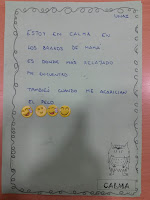 ESTOY EN CALMA EN
LOS BRAZOS DE MAMÁ
ES DONDE MÁS RELAJADO
ME ENCUENTRO
TAMBIÉN CUANDO ME ACARICIAN
EL PELO
CALMA